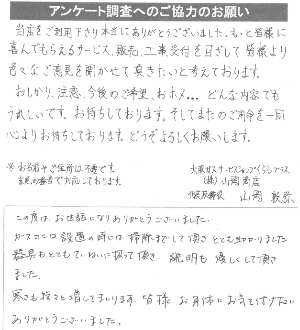 アンケート調査へのご協力のお願い
当店をご利用下さり本当にありがとうございました。もっと皆様に
喜んでもらえるサービス、販売、工事交付を目ざして皆様より
色々なご意見を聞かせて頂きたいと考えております。
おしかり、注意、今後のご希望、おホメ… どんな内容でも
うれしいです。お待ちしております。そしてまたのご用命を一同
心よりお待ちしております。どうぞよろしくお願いします。
※お名前やご住所は不要です。
大阪ガスサービスショップ
(株)山岡商店
代表取締役 山岡
この度は、お世話になりありがとうございました。
ガスコンロ設置の時には掃除までして頂きとても助かりました
器具もとてもていねいに扱って頂き 説明も優しくして頂き
ました。
寒さも段々と増してまいります。皆様 お身体にお気を付け下さい
ありがとうございました。